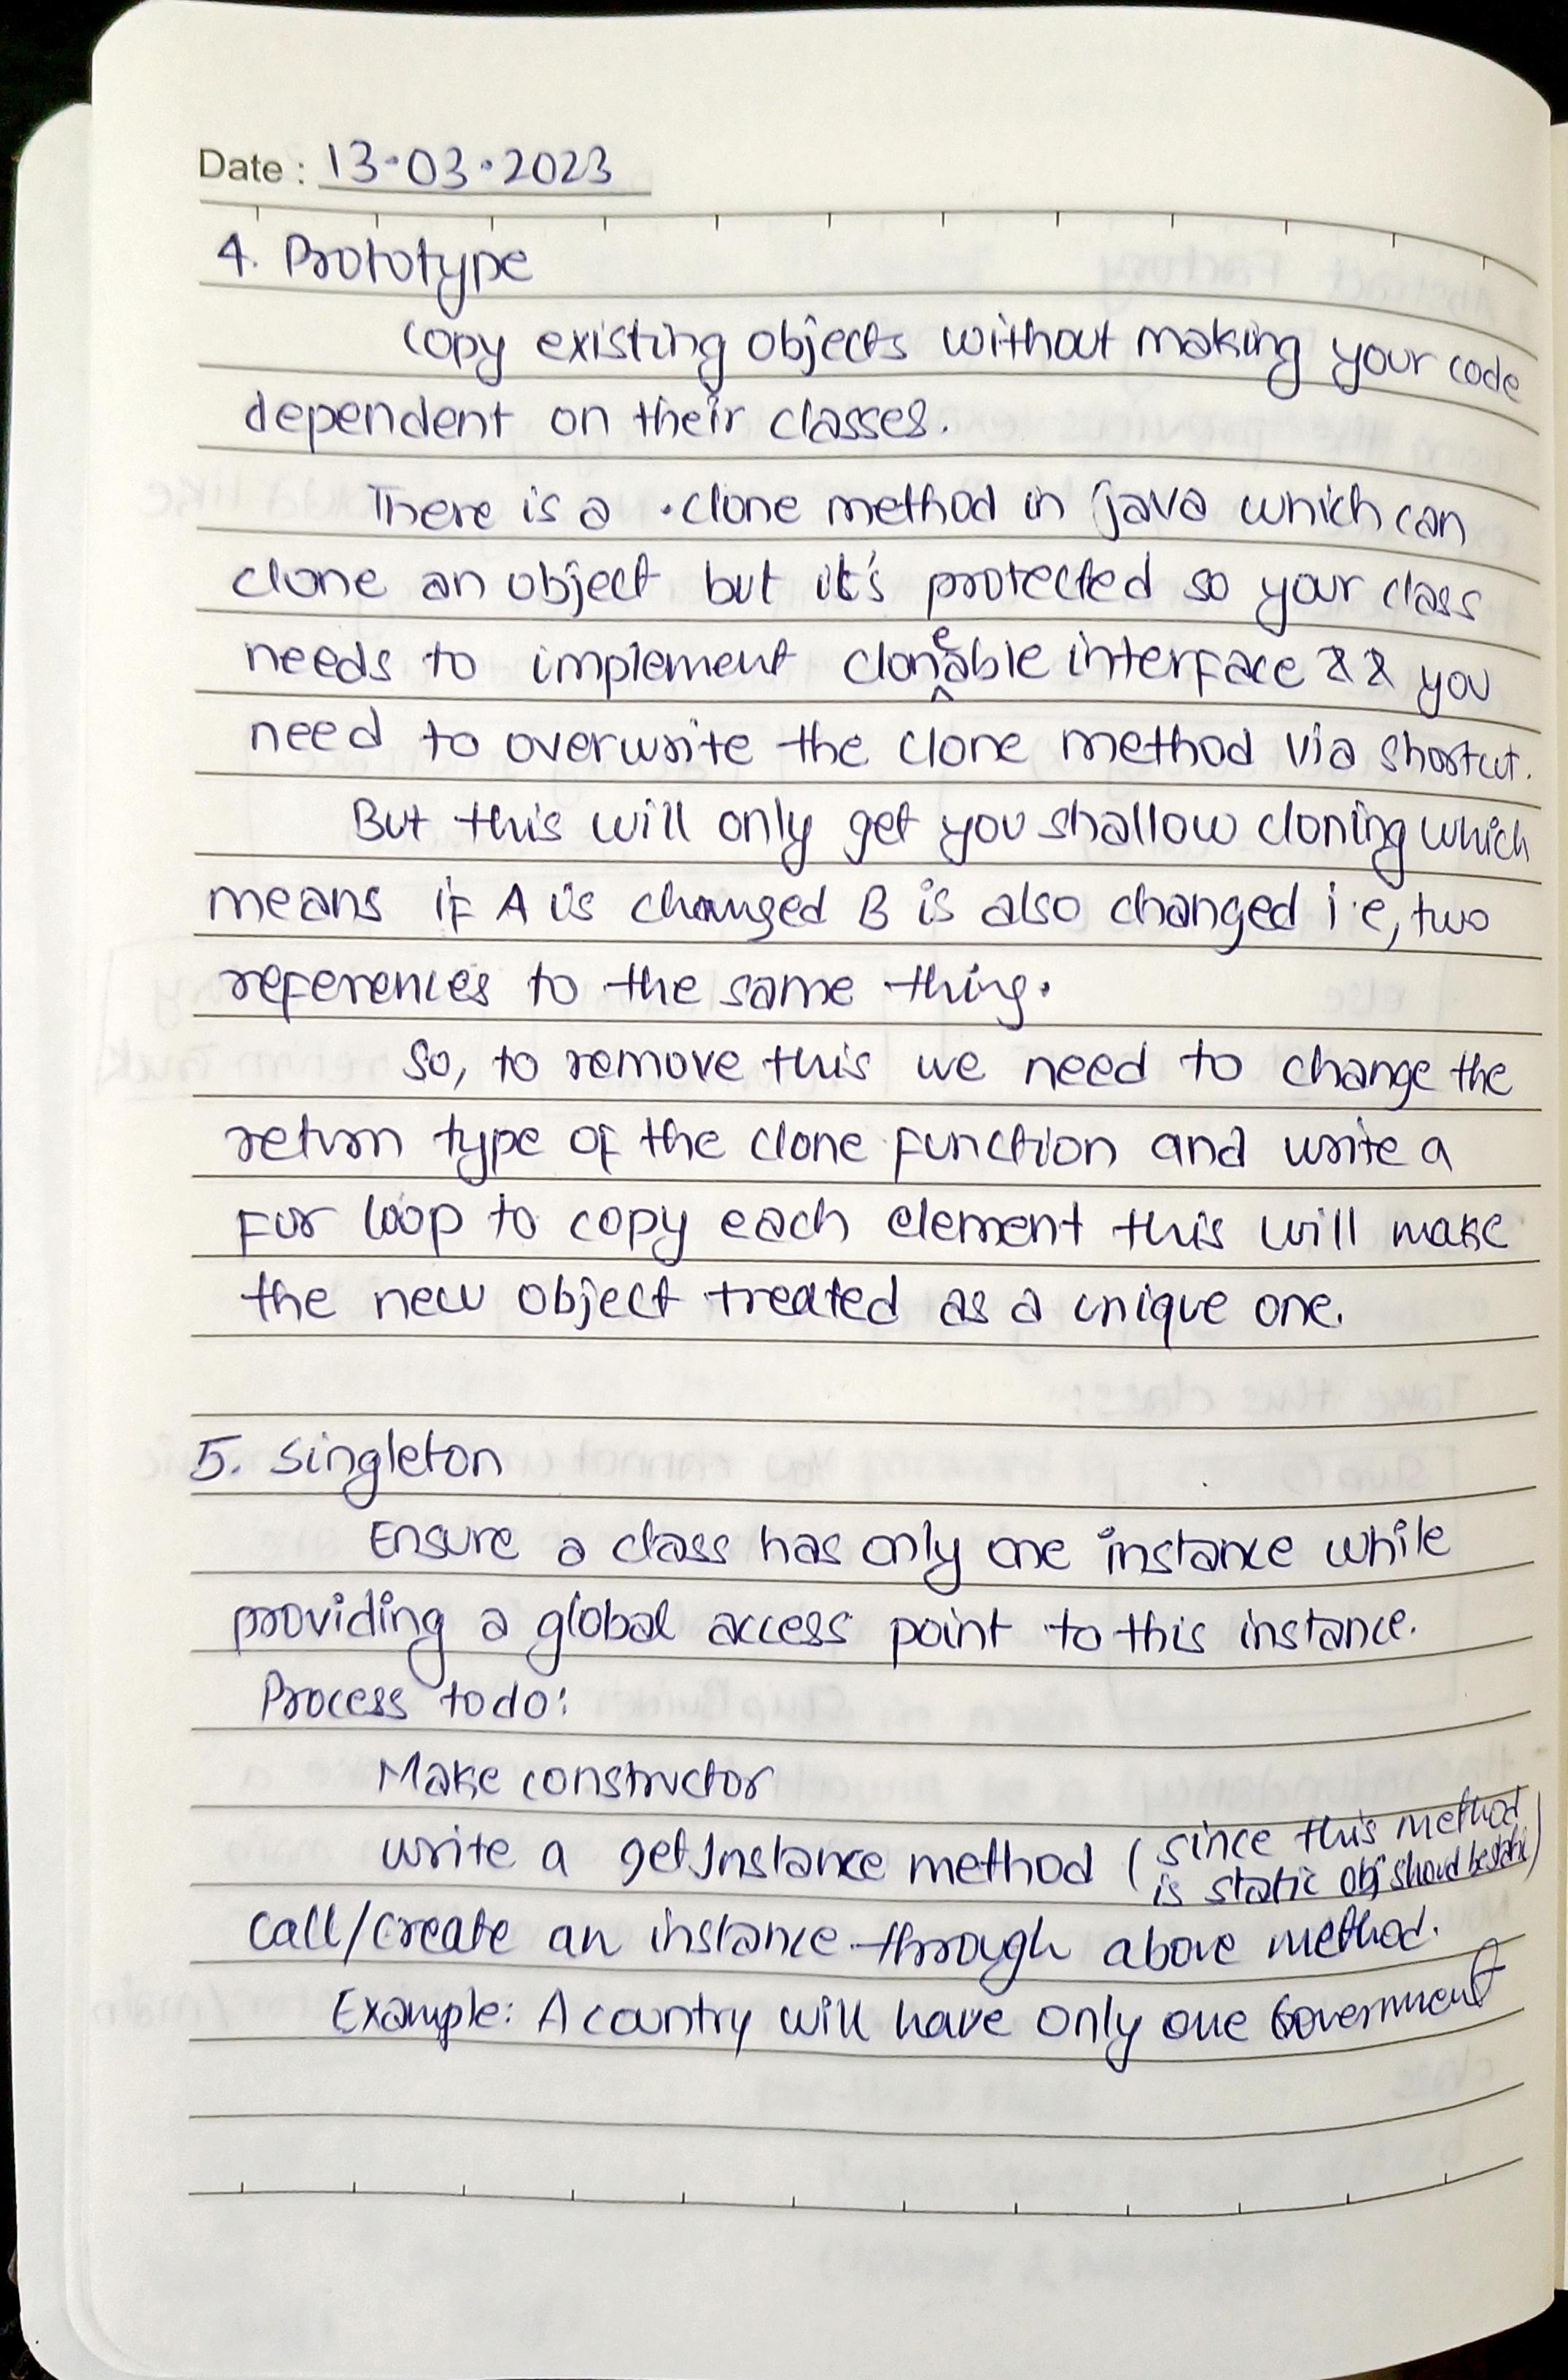 Date : 13.03.2023
4. Prototype
Copy existing objects without making your code
dependent on their classes.
There is a .clone method in java which can
clone an object but it's protected so your class
needs to implement cloneable interface && you
need to overwrite the clone method via shortcut.
But this will only get you shallow cloning which
means if A is changed B is also changed i.e, two
references to the same thing.
So, to remove this we need to change the
return type of the clone function and write a
for loop to copy each element this will make
the new object treated as a unique one.
5. Singleton
Ensure a class has only one instance while
providing a global access point to this instance.
Process to do:
Make constructor
write a getInstance method ( since this method
is static obj should be static )
call/create an instance through above method.
Example: A country will have only one Government